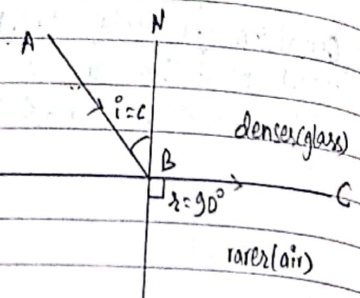 A
N
i=c
denser(glass)
B
C
r=90°
rarer(air)